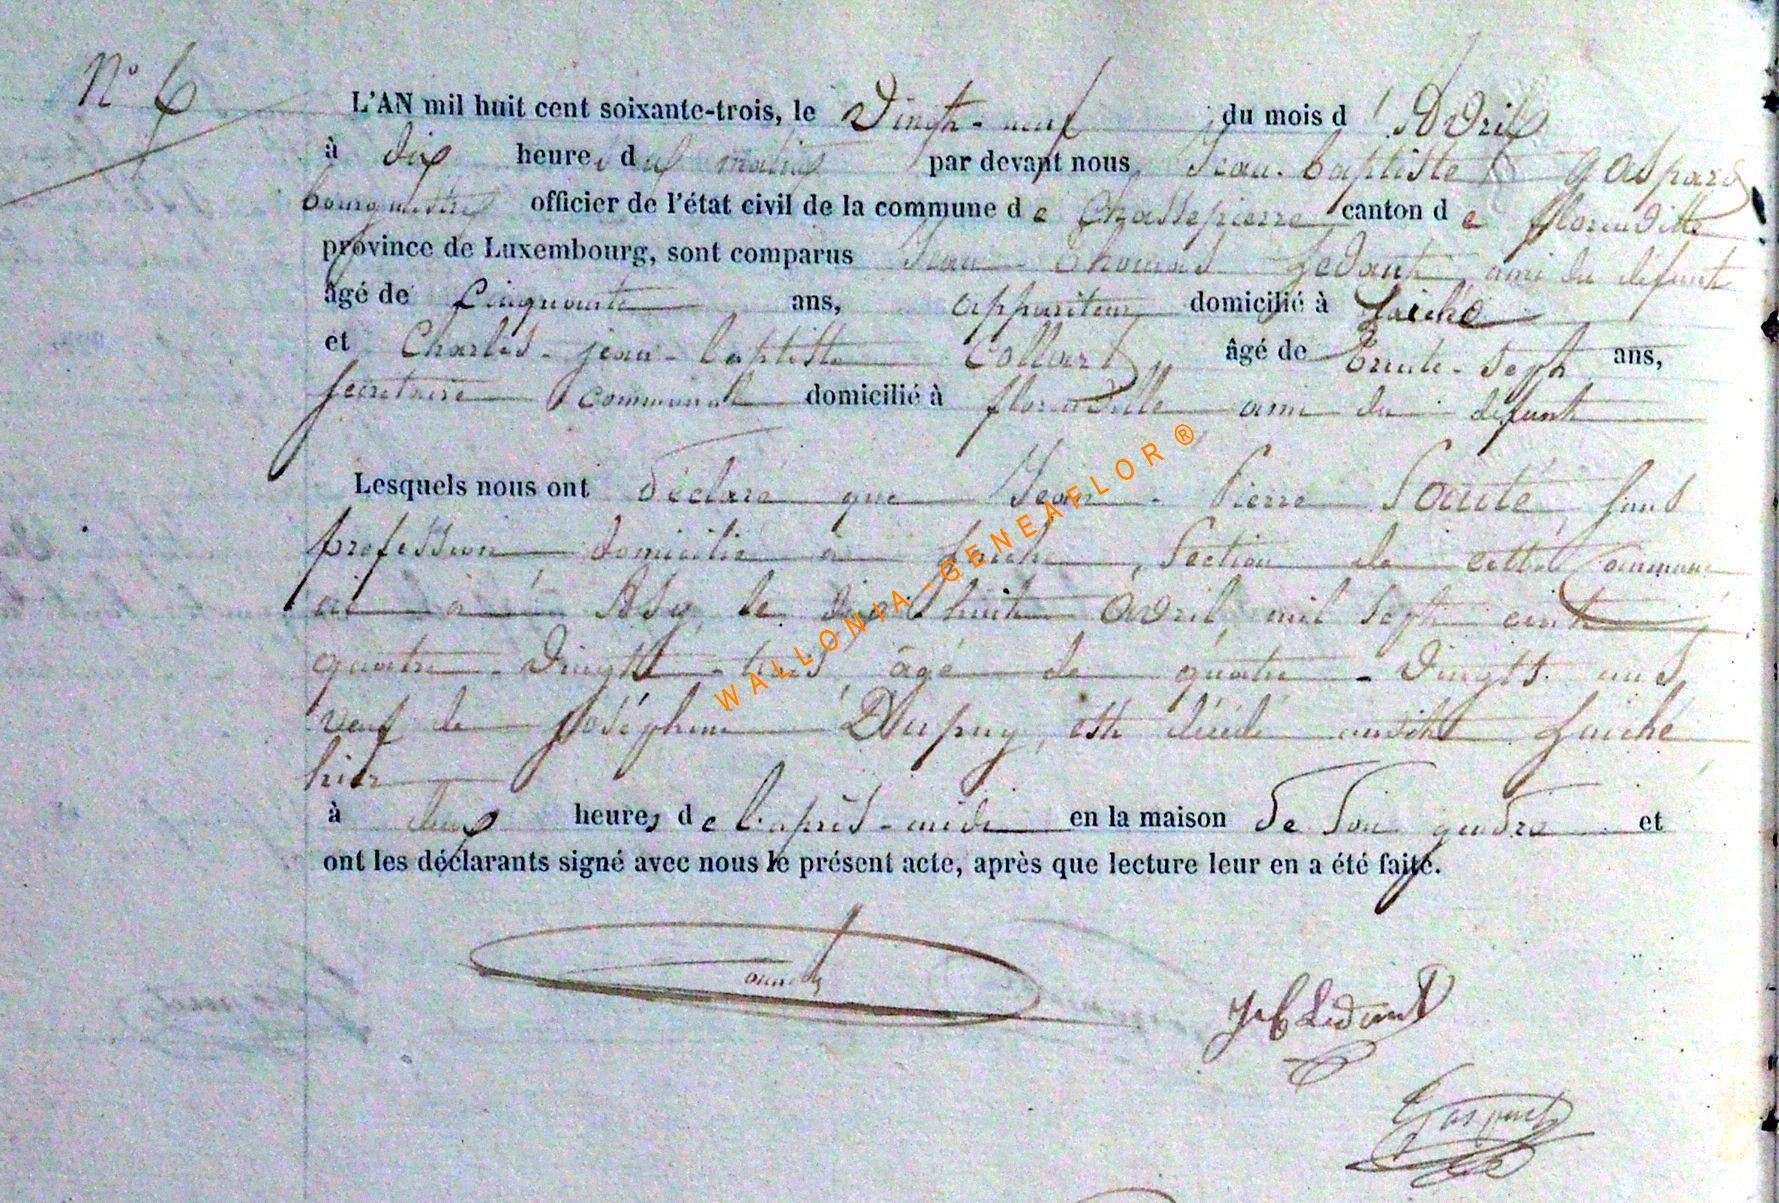 N° 6
L'AN mil huit cent soixante-trois, le Vingt-neuf du mois d'Avril
à dix heures du matin par devant nous Jean-baptiste Gaspard
bourgmestre officier de l'état civil de la commune de Chassepierre canton de florenville
province de Luxembourg, sont comparus Jean Thomas Ledant, ami du défunt
âgé de Cinquante ans, appariteur domicilié à Laiche
et Charles-jean-baptiste Collart, âgé de trente-sept ans,
secrétaire communal domicilié à florenville ami du défunt
Lesquels nous ont déclaré que Jean-Pierre sans
profession, domicilié à Laiche, Section de cette Commune
né à le dix huit Avril, mil sept cent
quatre-vingt-trois, âgé de quatre-vingts ans,
veuf de Joséphine Dupuy, est décédé audit Laiche
hier
à deux heures de l'après-midi en la maison de son gendre et
ont les déclarants signé avec nous le présent acte, après que lecture leur en a été faite.
WALLONIA GENEAFLOR ®
Ledant
Gaspard